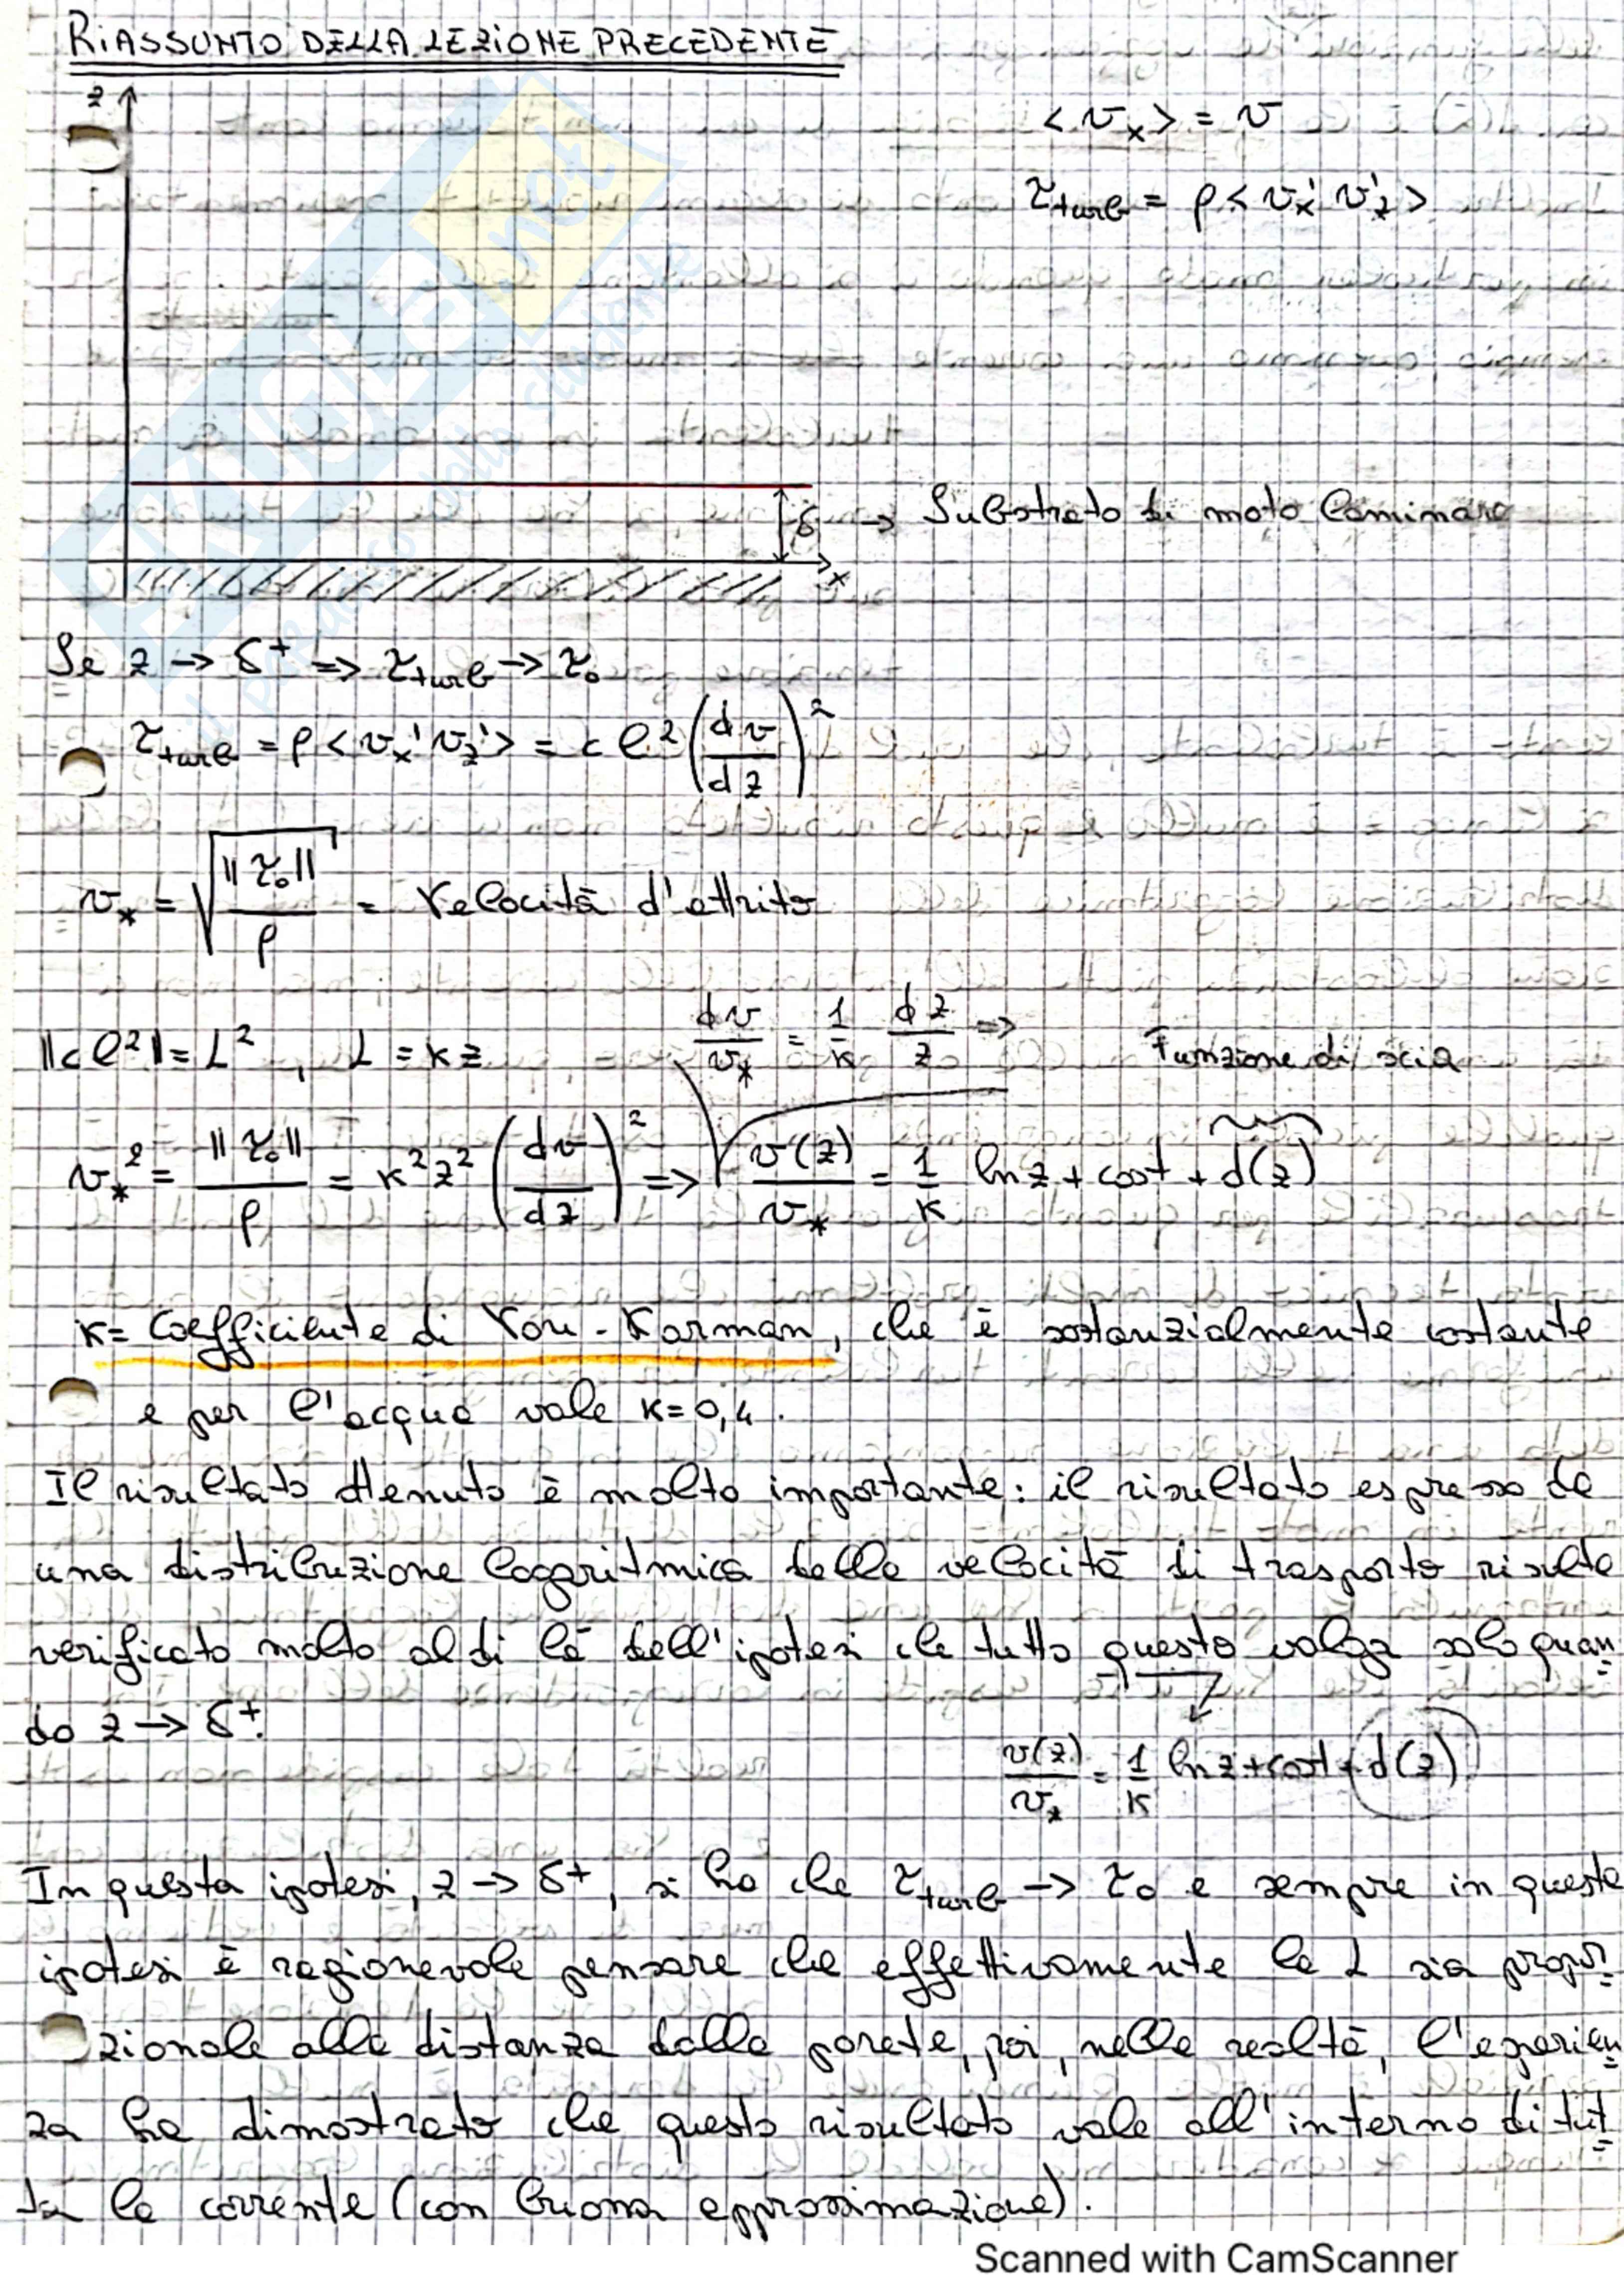 RIASSUNTO DELLA LEZIONE PRECEDENTE
z
<v_x> = v
τ_turb = ρ<v_x' v_z'>
δ → Substrato di moto laminare
x
Se z → δ⁺ => τ_turb → τ₀
τ_turb = ρ<v_x' v_z'> = c l² (dv/dz)²
v_* = √(||τ₀||/ρ) = Velocità d'attrito
||c l²|| = L² , L = κz
dv/v_* = 1/κ dz/z =>
Funzione di scia
v_*² = ||τ₀||/ρ = κ²z² (dv/dz)² => v(z)/v_* = 1/κ ln z + cost + d(z)
κ = Coefficiente di Von-Karman, che è sostanzialmente costante
e per l'acqua vale κ=0,4.
Il risultato ttenuto è molto importante: il risultato espresso da
una distribuzione logaritmica della velocità di trasporto risulta
verificato molto al di là dell'ipotesi che tutto questo valga solo quan
do z → δ⁺.
v(z)/v_* = 1/κ ln z + cost + d(z)
In questa ipotesi, z → δ⁺, si ha che τ_turb → τ₀ e sempre in questa
ipotesi è ragionevole pensare che effettivamente la L sia propor
zionale alla distanza dalla parete, poi, nella realtà, l'esperien
za ha dimostrato che questo risultato vale all'interno di tut
ta la corrente (con buona approssimazione).
SKUOLA.net
il paradiso dello studente
Scanned with CamScanner